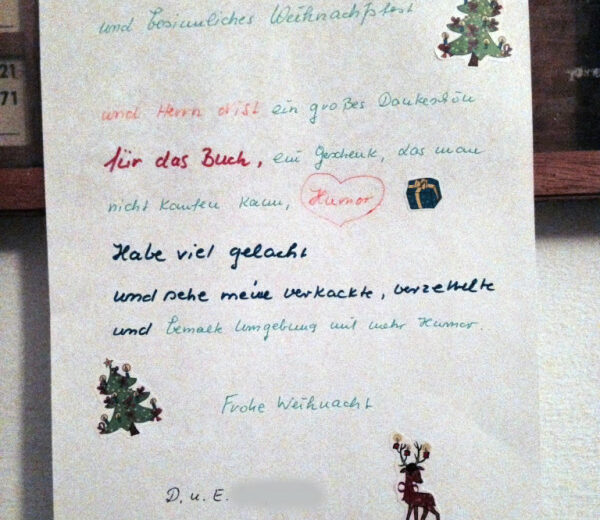 und besinnliches Weihnachtsfest
und Herrn Orist ein großes Dankeschön
für das Buch, ein Geschenk, das man
nicht kaufen kann, Humor
Habe viel gelacht
und sehe meine verkackte, verzettelte
und bemalte Umgebung mit mehr Humor.
Frohe Weihnacht
D. u. E.
21
71